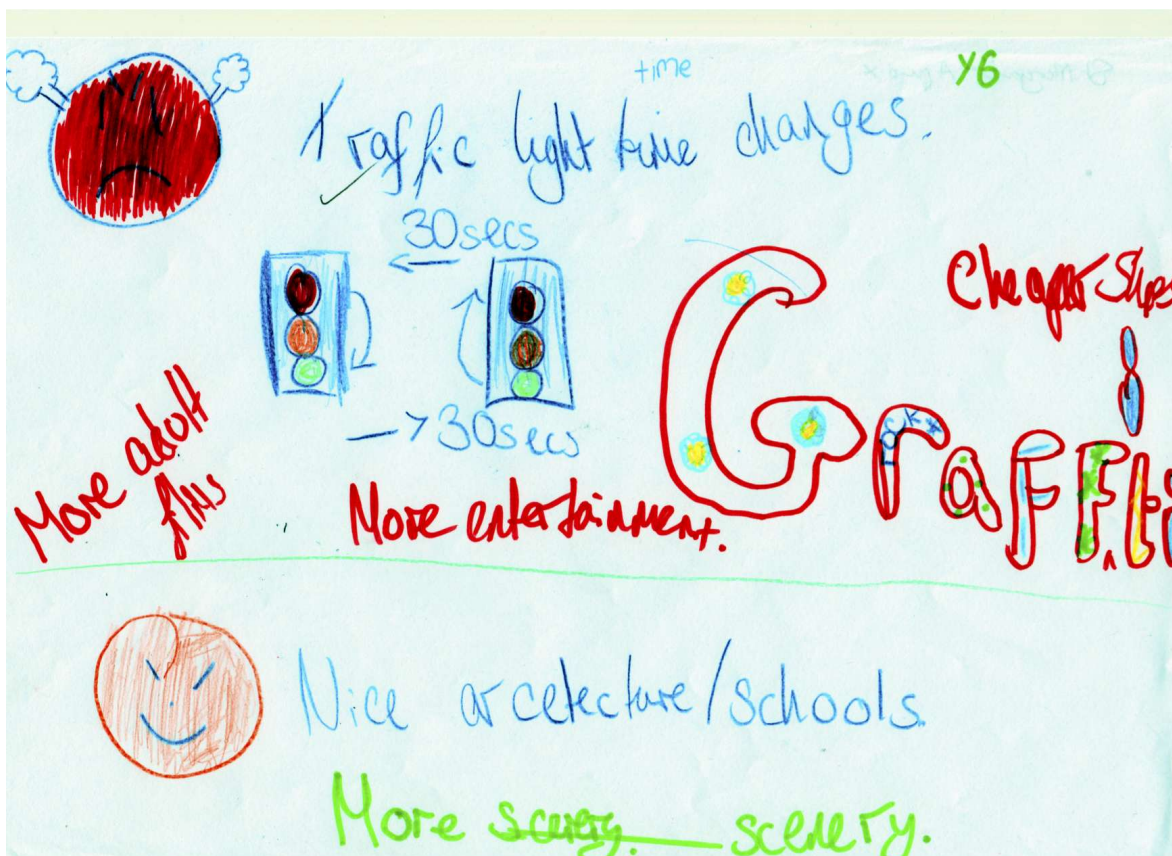 time
Y6
Traffic light time changes.
30secs
Cheaper
30secs
Graffiti
rock
More adult
films
More entertainment.
Nice arcetecture/schools.
More scenery.